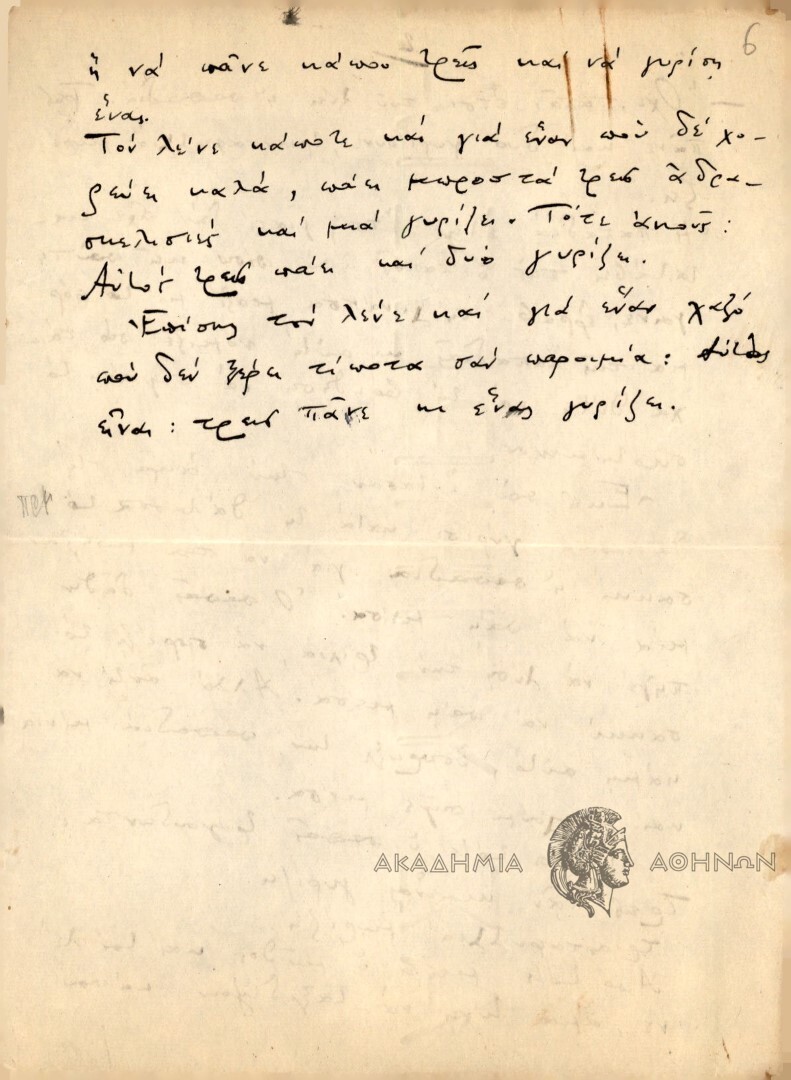 6
ἢ νά πᾶνε κάπου τρεῖς καί νά γυρίση
ἕνας.
Τόν λένε κάποτε καί γιά ἕναν πού δέ χο-
ρεύει καλά, πάει μπροστά τρεις ἀδρα-
σκελισιές καί μιά γυρίζει. Τότε ἀκοῦς:
Αὐτός τρεις πάει καί δυό γυρίζει.
Ἐπίσης τόν λένε καί γιά ἕναν χαζό
πού δέν ξέρει τίποτα σάν παροιμία: Αὐτός
εἶναι: τρεις πᾶνε κι ἕνας γυρίζει.
ΑΚΑΔΗΜΙΑ ΑΘΗΝΩΝ